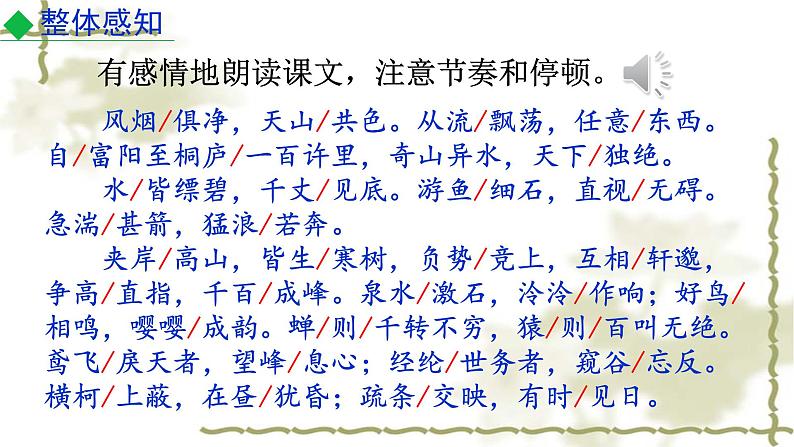 整体感知
有感情地朗读课文，注意节奏和停顿。
风烟/俱净，天山/共色。从流/飘荡，任意/东西。
自/富阳至桐庐/一百许里，奇山异水，天下/独绝。
水/皆缥碧，千丈/见底。游鱼/细石，直视/无碍。
急湍/甚箭，猛浪/若奔。
夹岸/高山，皆生/寒树，负势/竞上，互相/轩邈，
争高/直指，千百/成峰。泉水/激石，泠泠/作响；好鸟/
相鸣，嘤嘤/成韵。蝉/则/千转不穷，猿/则/百叫无绝。
鸢飞/戾天者，望峰/息心；经纶/世务者，窥谷/忘反。
横柯/上蔽，在昼/犹昏；疏条/交映，有时/见日。